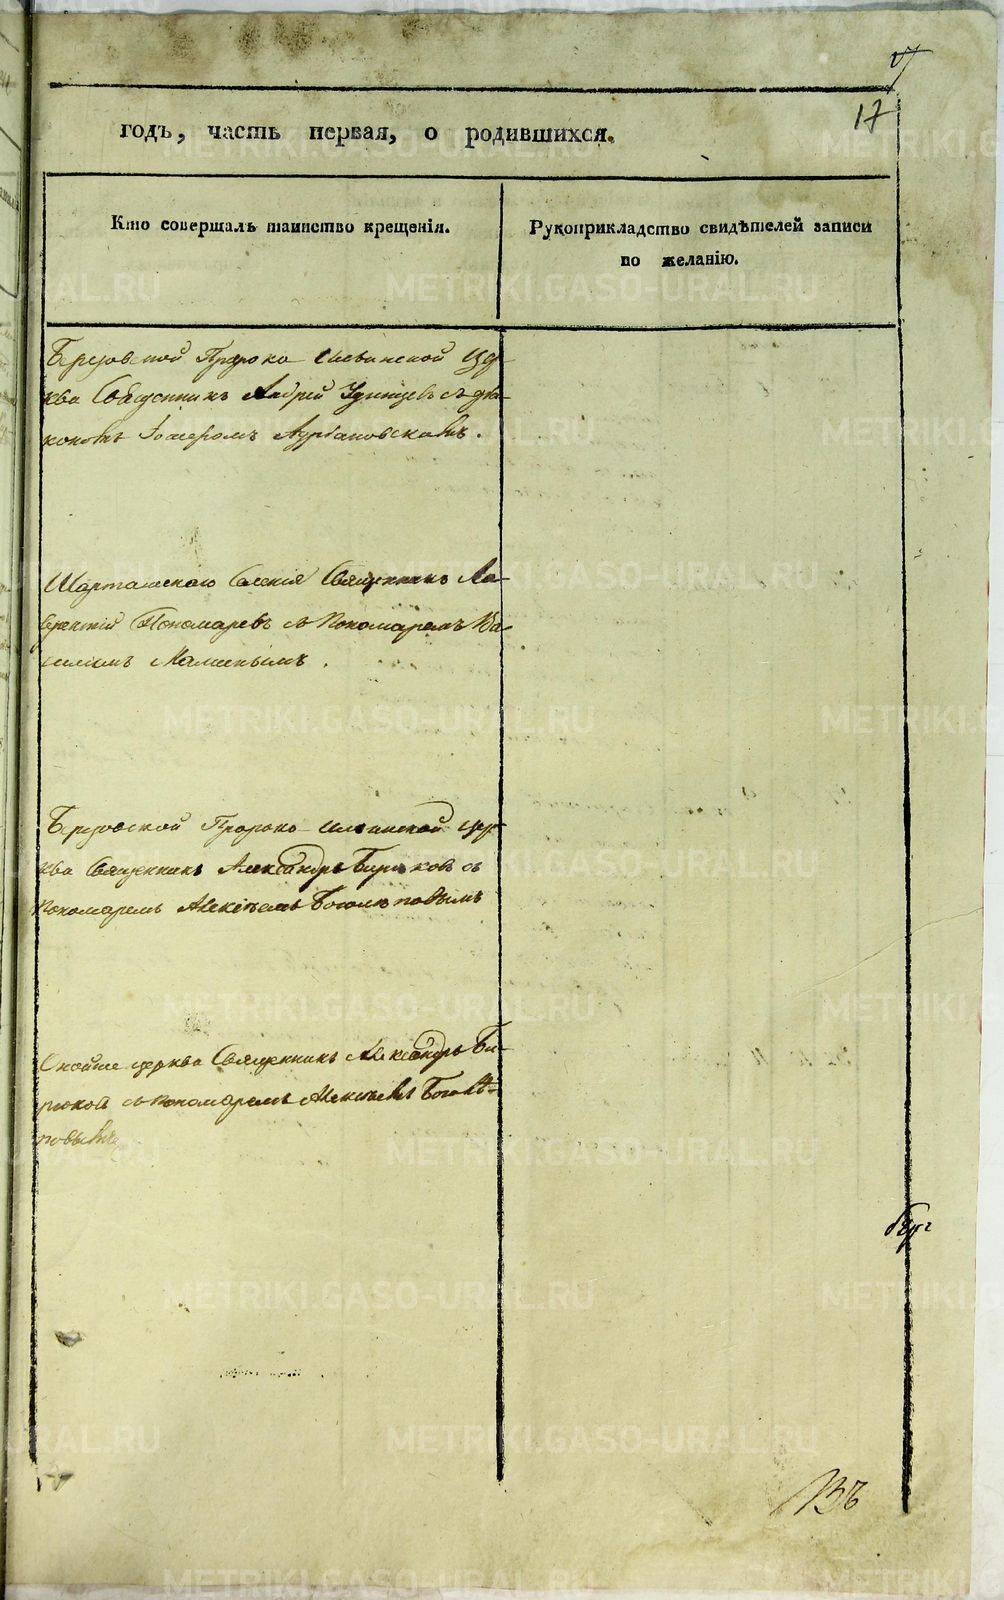 17
годъ, часть первая, о родившихся.
Кто совершалъ таинство крещенія.
Рукоприкладство свидѣтелей записи
по желанію.
Березовской Пророко Ильинской Цер-
кви Священникъ Андрей Удинцевъ съ діа-
кономъ
Шарташскаго Селенія Священникъ Ла-
врентій Пономаревъ съ Пономаремъ Ва-
силіемъ
Березовской Пророко Ильинской Цер-
кви Священникъ Александръ Бирюковъ съ
Пономаремъ Алексѣемъ Боголѣповымъ
церкви Священникъ Александръ Би-
рюковъ съ Пономаремъ Алексѣемъ Боголѣ-
повымъ
METRIKI.GASO-URAL.RU